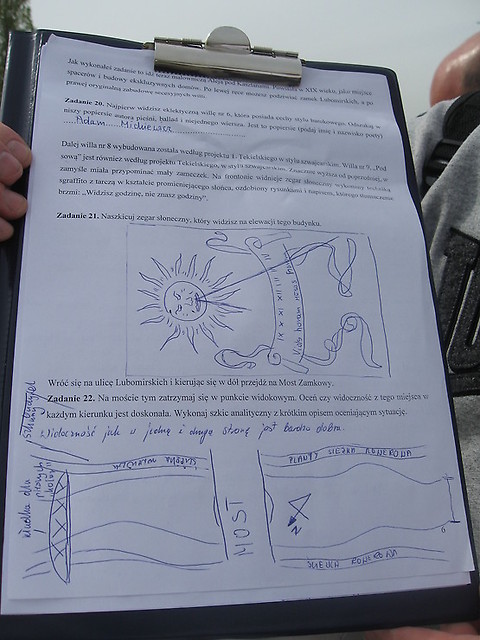 Jak wykonałeś zadanie to idź teraz malowniczą Aleją pod Kasztanami. Powstała w XIX wieku, jako miejsce
spacerów i budowy ekskluzywnych domów. Po lewej ręce możesz podziwiać zamek Lubomirskich, a po
prawej oryginalną zabudowę secesyjnych willi.
Zadanie 20. Najpierw widzisz eklektyczną willę nr 6, która posiada cechy stylu barokowego. Odszukaj w
niszy popiersie autora pieśni, ballad i niejednego wiersza. Jest to popiersie (podaj imię i nazwisko poety)
Adam Mickiewicz
Dalej willa nr 8 wybudowana została według projektu T. Tekielskiego w stylu szwajcarskim. Willa nr 9, „Pod
sową” jest również według projektu Tekielskiego, w stylu szwajcarskim. Znacznie wyższa od poprzedniej, w
zamyśle miała przypominać mały zameczek. Na frontonie widnieje zegar słoneczny wykonany techniką
sgraffito z tarczą w kształcie promieniejącego słońca, ozdobiony rysunkami i napisem, którego tłumaczenie
brzmi: „Widzisz godzinę, nie znasz godziny”.
Zadanie 21. Naszkicuj zegar słoneczny, który widzisz na elewacji tego budynku.
Vides horam
Wróć się na ulicę Lubomirskich i kierując się w dół przejdź na Most Zamkowy.
Zadanie 22. Na moście tym zatrzymaj się w punkcie widokowym. Oceń czy widoczność z tego miejsca w
każdym kierunku jest doskonała. Wykonaj szkic analityczny z krótkim opisem oceniającym sytuację.
Widoczność jak w jedną i drugą stronę jest bardzo dobra.
kładka dla
pieszych
MOST
N
6